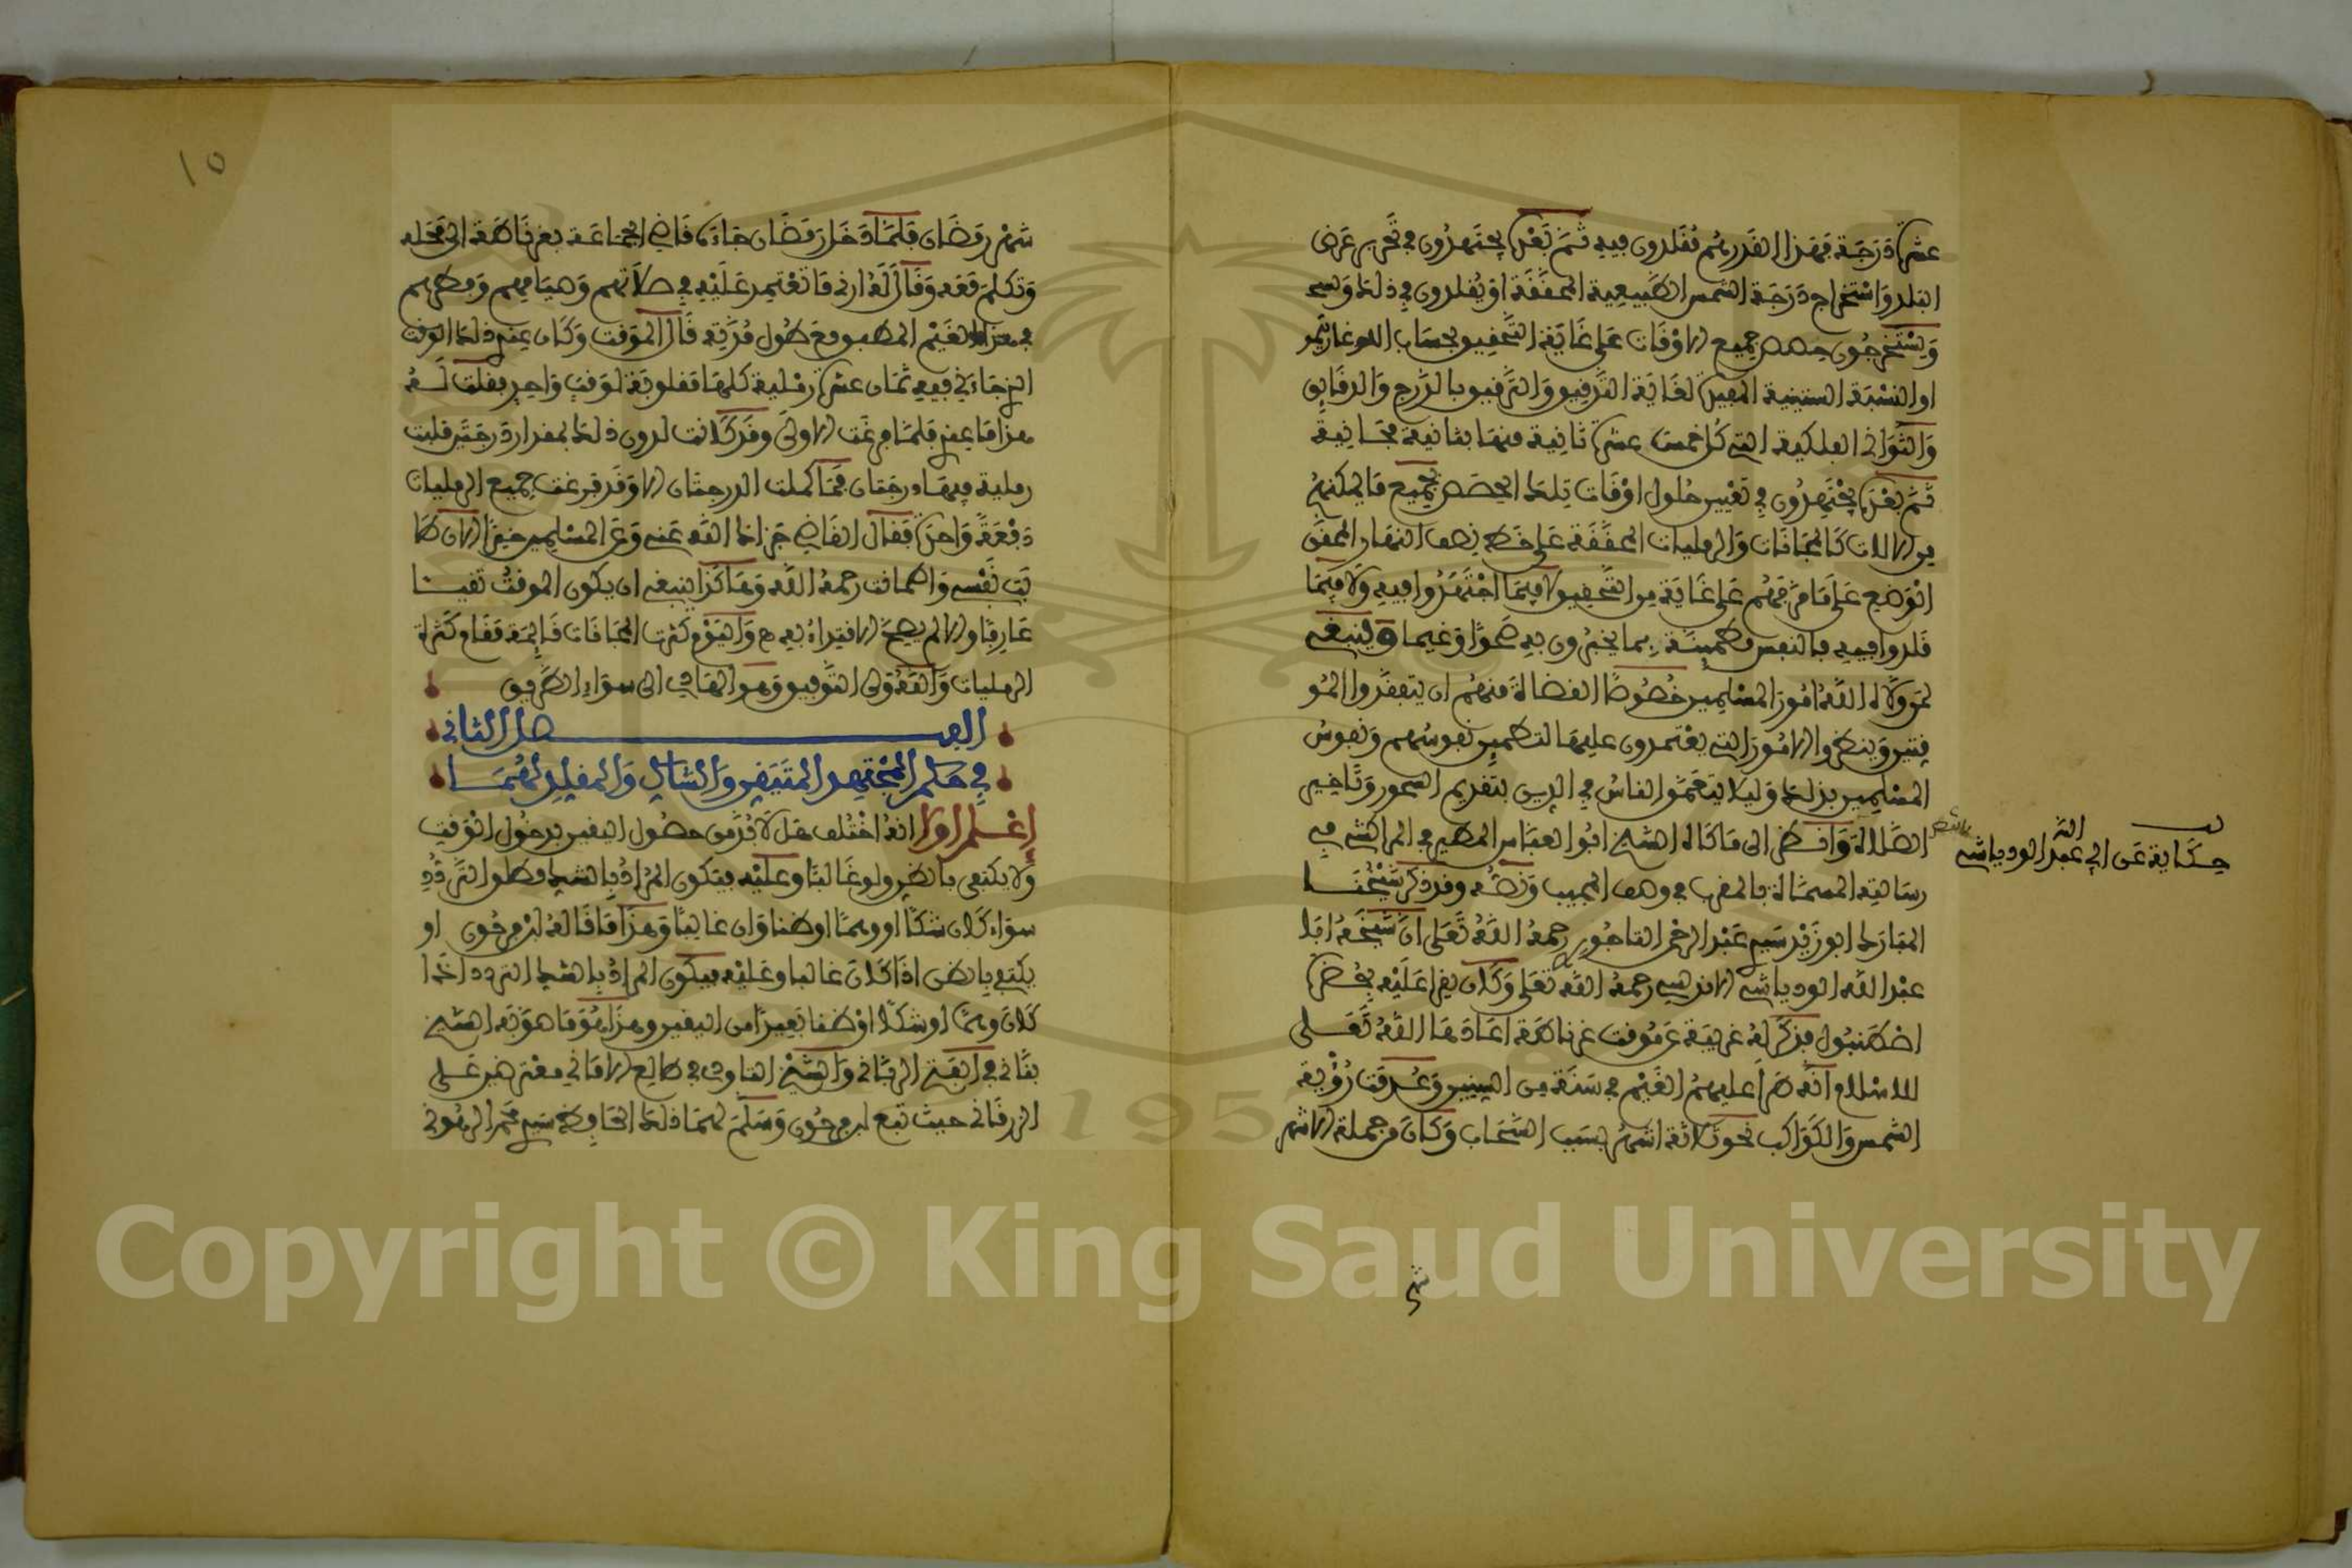 عشرة درجة فهذا القدر هم مقلدون فيه ثم بعد يجتهدون في تحرير عرض
البلد واستخراج درجة الشمس الطبيعية المحققة او يقلدون في ذلك
ويستخرجون حصص جميع الاوقات على غاية التحقيق بحساب اللوغاريتم
او النسبة الستينية المفيدة لغاية التدقيق والترقيق بالدرج والدقايق
والثواني الفلكية التي كل خمس عشرة ثانية منها بثانية مجانية
ثم بعد يجتهدون في تعيين حلول اوقات تلك الحصص بجميع ما يمكنهم
من الالات كالمجانات والرمليات المحققة على خط نصف النهار المحقق
الوضع على غاية من التحقيق لا فيما اجتهدوا فيه ولا فيما
قلدوا فيه فالنفس مطمئنة بما يخبرون به صحوا او غيما وينبغي
لمن ولاه الله امور المسلمين خصوصا القضاة منهم ان يتفقدوا المو
قتين وينظروا الامور التي يعتمدون عليها لتطمين نفوسهم ونفوس
المسلمين بذلك وليلا يتعمق الناس في الدين بتقديم السحور وتاخير
الصلاة وانظر الى ما قاله الشيخ ابو العباس المطهر في المراكشي في
رسالته المسماة بالمغرب في وصف المجيب ونصه وقد ذكر شيخنا
المبارك ابو زيد سيدي عبد الرحمن التاجوري رحمه الله تعلى ان شيخه ابا
عبد الله الودياشي الاندلسي رحمه الله تعلى وكان يقرا عليه بحضرة
اصطنبول فذكر له غريبة عن موقت غرناطة اعادها الله تعلى
للاسلام انه طرا عليهم الغيم في سنة من السنين وعدمت رؤية
الشمس والكواكب نحو ثلاثة اشهر بسبب السحاب وكان من جملة الاشهر
حكاية عن ابي عبد الله الودياشي
شهر
شهر رمضان فلما دخل رمضان جاءه قاضي الجماعة بغرناطة الى محله
وتكلم معه وقال له اني ما نعتمد عليه في صلاتهم وصيامهم وفطرهم
في هذا الغيم المطبق مع طول مدته قال الموقت وكان عندي ذلك الوقت
الذي جاءني فيه ثمان عشرة رملية كلها مقلوبة لوقت واحد فقلت له
هذا ما عندي فلما فرغت الاولى وقد كانت لدون ذلك بمقدار درجتين قلبت
رملية فيها درجتان فما كملت الدرجتان الا وقد فرغت جميع الرمليات
دفعة واحدة فقال القاضي جزاك الله عني وعن المسلمين خيرا الان طا
بت نفسي واطمانت رحمه الله وهاكذا ينبغي ان يكون الموقت تقيا
عارفا والا لم يصح الاقتداء به واليوم كثرت المجانات قايمة مقام كثرة
الرمليات والله ولي التوفيق وهو الهادي الى سواء الطريق
الفصل الثاني
في حكم المجتهد المتيقن والشاك والمقلد لهما
اعلم اولا انه اختلف هل لا بد من حصول اليقين بدخول الوقت
ولا يكتفى بالظن ولو غالبا وعليه فيكون المراد بالشك مطلق التردد
سواء كان شكا او وهما او ظنا وان غالبا وهذا ما قاله ابن فرحون او
يكتفى بالظن اذا كان غالبا وعليه فيكون المراد بالشك التردد اذا
كان وهما او شكا او ظنا بعيدا من اليقين وهذا هو ما صوبه الشيخ
بناني في الفتح الرباني والشيخ التاودي في طالع الاماني معترضين على
الزرقاني حيث تبع ابن فرحون وسلم لهما ذلك المحقق سيدي محمد الرهوني